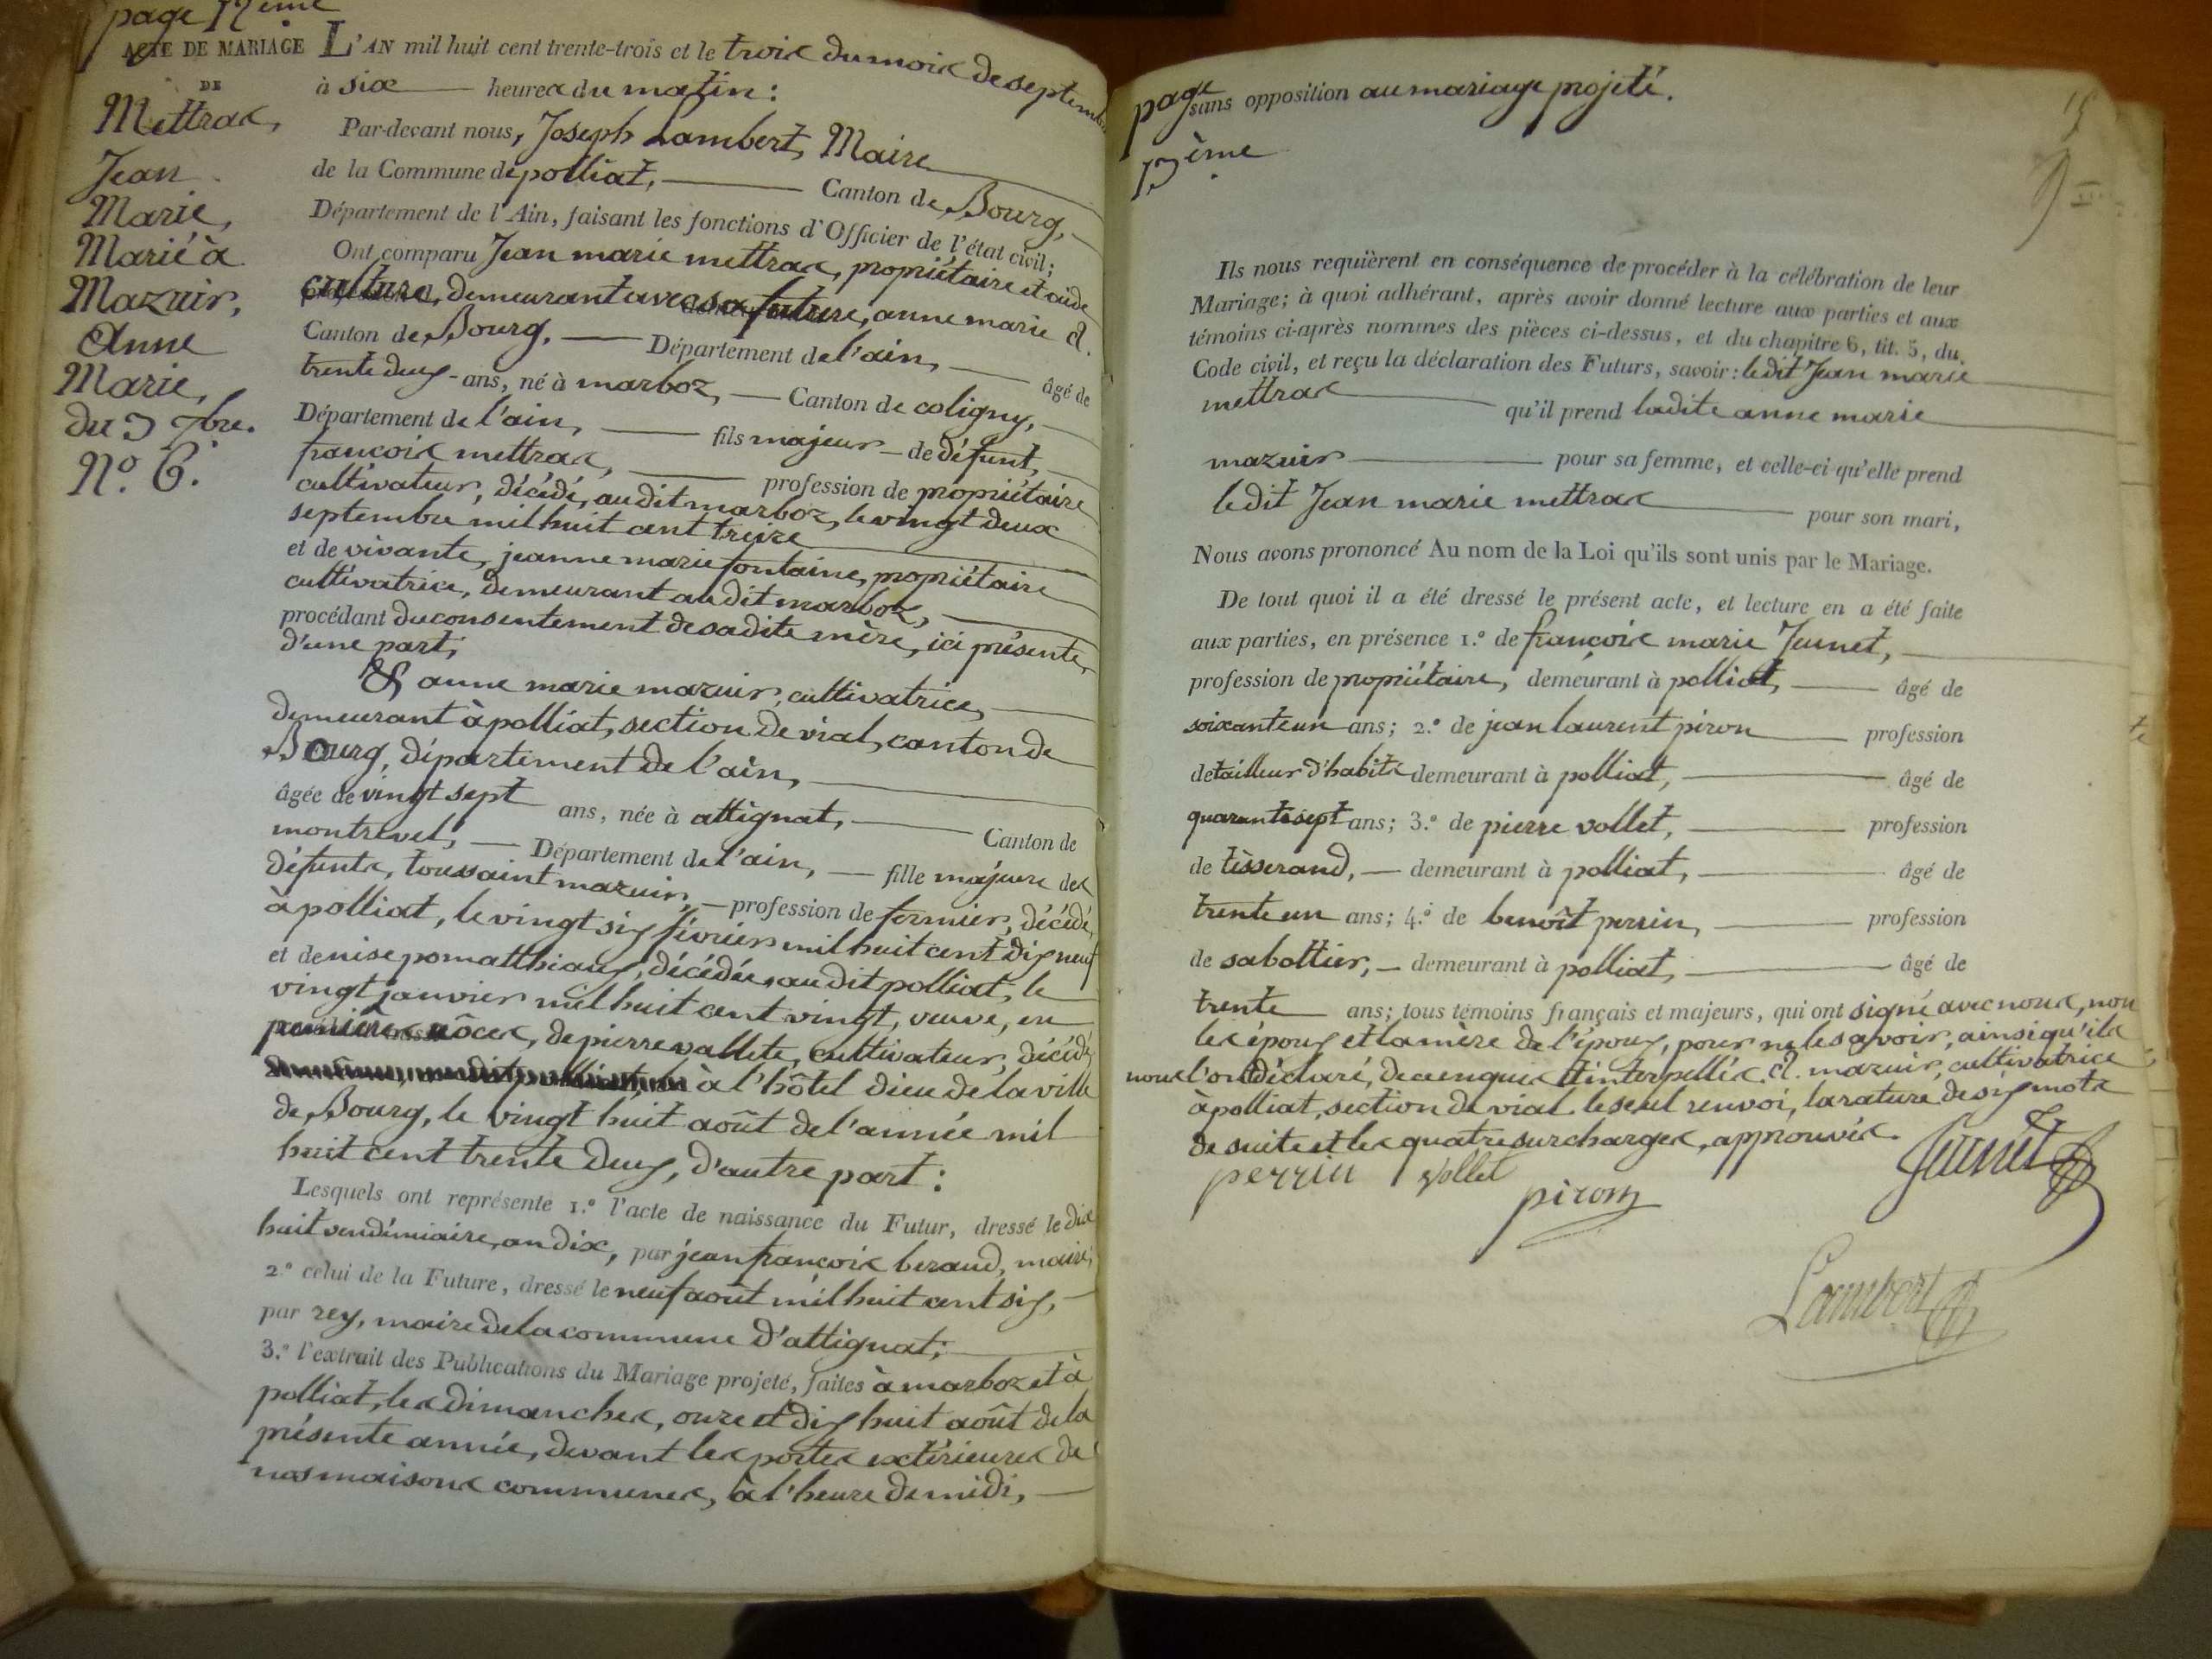 page 12ème
ACTE DE MARIAGE
DE
Mettras,
Jean
Marie,
Marié à
Mazuir,
Anne
Marie,
du 3 7bre.
N.o 6.
L'AN mil huit cent trente-trois et le trois du mois de septembre
à six heures du matin:
Par-devant nous, Joseph Lambert, Maire
de la Commune de polliat, Canton de Bourg,
Département de l'Ain, faisant les fonctions d'Officier de l'état civil;
Ont comparu Jean marie mettras, propriétaire et aide
culture, demeurant avec sa future, anne marie A.
Canton de Bourg, Département de l'ain, âgé de
trente deux ans, né à marboz, Canton de coligny,
Département de l'ain, fils majeur de défunt,
françois mettras, profession de propriétaire
cultivateur, décédé, au dit marboz, le vingt deux
septembre mil huit cent treize
et de vivante, jeanne marie fontaine, propriétaire
cultivatrice, demeurant au dit marboz,
procédant du consentement de sadite mère, ici présente,
d'une part;
& anne marie mazuir, cultivatrice,
demeurant à polliat, section de vial, canton de
Bourg, département de l'ain,
âgée de vingt sept ans, née à attignat, Canton de
montrevel, Département de l'ain, fille majeure des
défunts, toussaint mazuir, profession de fermier, décédé,
à polliat, le vingt six février mil huit cent dix neuf
et denise pomatthiaux, décédée, au dit polliat, le
vingt janvier mil huit cent vingt, veuve, en
premières nôces, de pierre vallete, cultivateur, décédé,
à l'hôtel dieu de la ville
de Bourg, le vingt huit août de l'année mil
huit cent trente deux, d'autre part:
Lesquels ont représenté 1.o l'acte de naissance du Futur, dressé le dix
huit vendémiaire, an dix, par jean françois beraud, maire;
2.o celui de la Future, dressé le neuf août mil huit cent six,
par rey, maire de la commune d'attignat;
3.o l'extrait des Publications du Mariage projeté, faites à marboz et à
polliat, les dimanches, onze et dix huit août de la
présente année, devant les portes extérieures de
nos maisons communes, à l'heure de midi,
page
13ème
sans opposition au mariage projeté.
Ils nous requièrent en conséquence de procéder à la célébration de leur
Mariage; à quoi adhérant, après avoir donné lecture aux parties et aux
témoins ci-après nommés des pièces ci-dessus, et du chapitre 6, tit. 5, du
Code civil, et reçu la déclaration des Futurs, savoir: ledit Jean marie
mettras qu'il prend ladite anne marie
mazuir pour sa femme, et celle-ci qu'elle prend
ledit Jean marie mettras pour son mari,
Nous avons prononcé Au nom de la Loi qu'ils sont unis par le Mariage.
De tout quoi il a été dressé le présent acte, et lecture en a été faite
aux parties, en présence 1.o de françois marie Jeunet,
profession de propriétaire, demeurant à polliat, âgé de
soixante un ans; 2.o de jean laurent piron profession
de tailleur d'habits demeurant à polliat, âgé de
quarante sept ans; 3.o de pierre vollet, profession
de tisserand, demeurant à polliat, âgé de
trente un ans; 4.o de benoît perrin, profession
de sabottier, demeurant à polliat, âgé de
trente ans; tous témoins français et majeurs, qui ont signé avec nous, non
les époux et la mère de l'époux, pour ne le savoir, ainsi qu'ils
nous l'ont déclaré, de ce enquis et interpellés. A. mazuir, cultivatrice
à polliat, section de vial. le seul renvoi, la rature de six mots
de suite et les quatre surcharges, approuvés.
perrin vollet
piron
Jeunet
Lambert